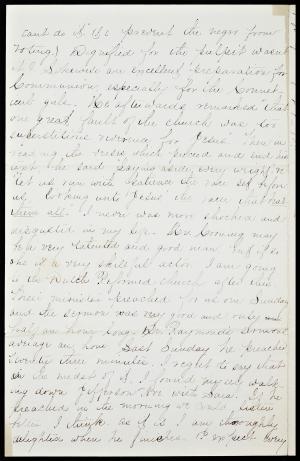 cant do it i.e. prevent the negro from
voting.) Dignified for the pulpit wasnt
it? Likewise an excellent preparation for
Communion especially for the Connet-
icut gals. He afterwards remarked "that
one great fault of the church was too
superstitious reverence for Jesus" Then in
reading the verses which proceed and
he said "laying aside every weight
let us run with patience the race set before
us looking unto Jesus the
them all. I never was more shocked and
disgusted in my life. Mr. may
be a very talented and good man but if so
he is a very skillful actor. I am going
to the Dutch Reformed church after this
Their minister preached for us one Sunday
and the sermon was very good and only
half an hour long. Dr. Raymonds sermons
average an hour Last Sunday he preached
I regret to say that
in the midst of it I found myself walk-
ing down Jefferson Ave with Sara. If he
preached in the morning
I think as it is I am thoroughly
delighted when he finishes. I expect every